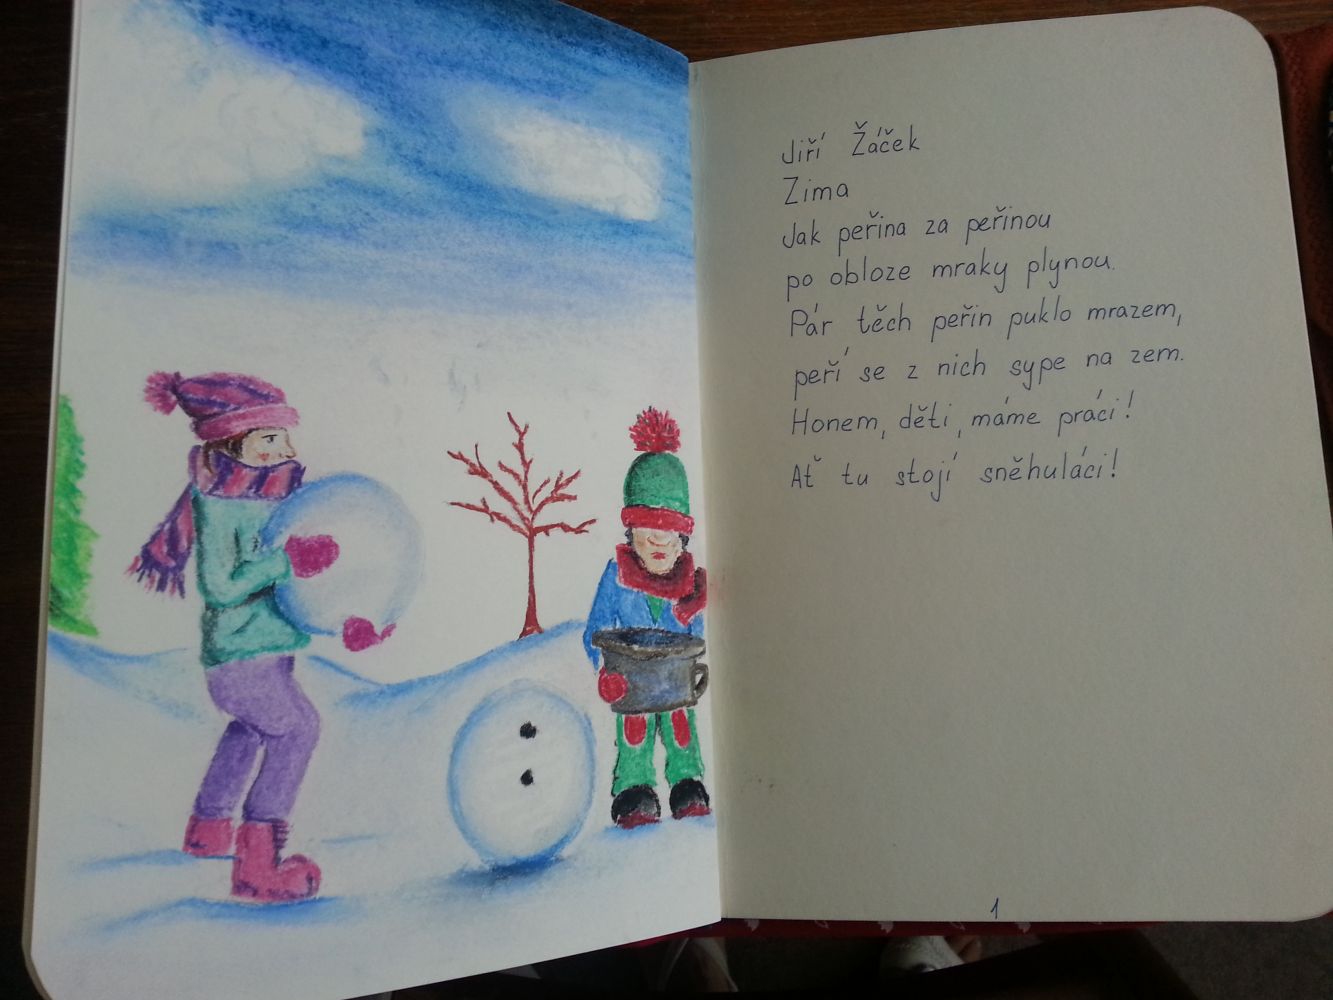 Jiří Žáček
Zima
Jak peřina za peřinou
po obloze mraky plynou.
Pár těch peřin puklo mrazem,
peří se z nich sype na zem.
Honem, děti, máme práci!
Ať tu stojí sněhuláci!
1